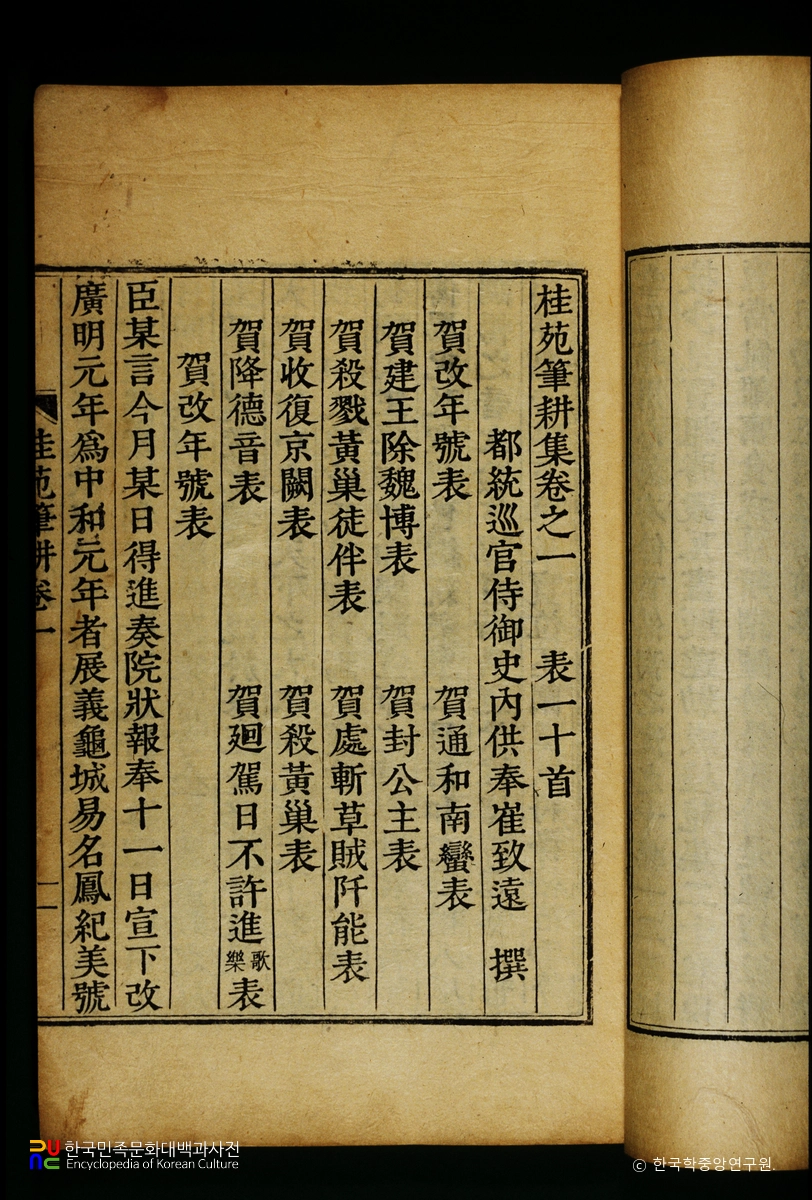 桂苑筆耕集卷之一　表一十首
都統巡官侍御史內供奉崔致遠　撰
賀改年號表　賀通和南蠻表
賀建王除魏博表　賀封公主表
賀殺戮黃巢徒伴表　賀處斬草賊阡能表
賀收復京闕表　賀殺黃巢表
賀降德音表　賀廻駕日不許進歌樂表
賀改年號表
臣某言今月某日得進奏院狀報奉十一日宣下改
廣明元年爲中和元年者展義龜城易名鳳紀美號
桂苑筆耕卷一　一
한국민족문화대백과사전
Encyclopedia of Korean Culture
© 한국학중앙연구원.